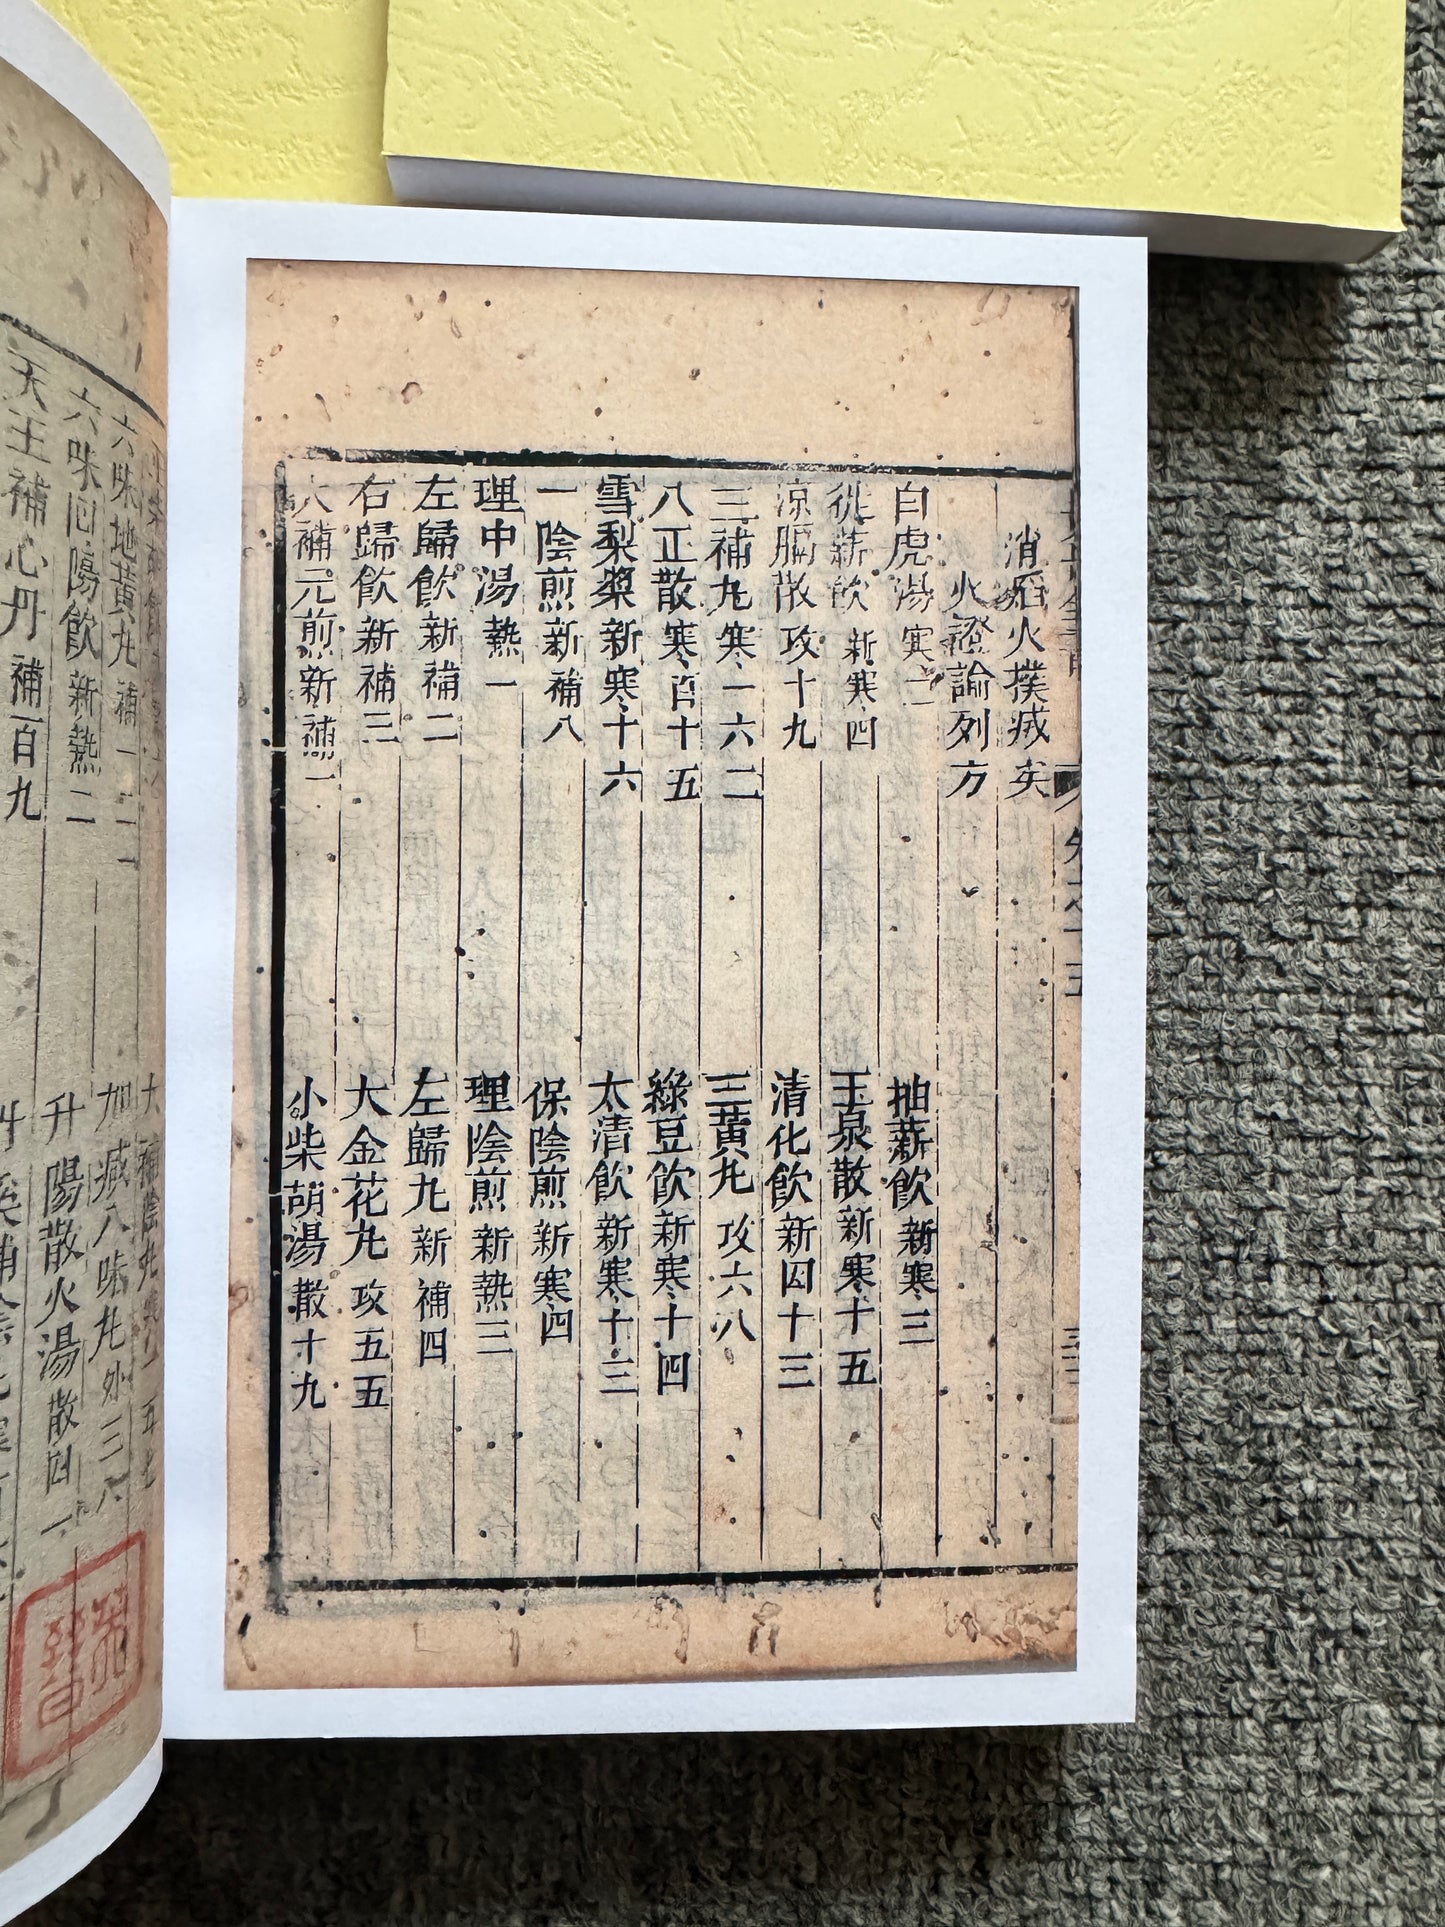 消滔火撲㓕矣
火證論列方
白虎湯 寒二
抽薪飲 新寒三
徙薪飲 新寒四
玉泉散 新寒十五
涼膈散 攻十九
清化飲 新因十三
三補丸 寒一六二
三黄丸 攻六八
八正散 寒百十五
綠豆飲 新寒十四
雪梨漿 新寒十六
太清飲 新寒十三
一陰煎 新補八
保陰煎 新寒四
理中湯 熱一
理陰煎 新熱三
左歸飲 新補二
左歸丸 新補四
右歸飲 新補三
大金花丸 攻五五
大補元煎 新補一
小柴胡湯 散十九
六味地黄丸 補一二一
加減八味丸 外三八
六味回陽飲 新熱二
升陽散火湯 散四一
天王補心丹 補百九